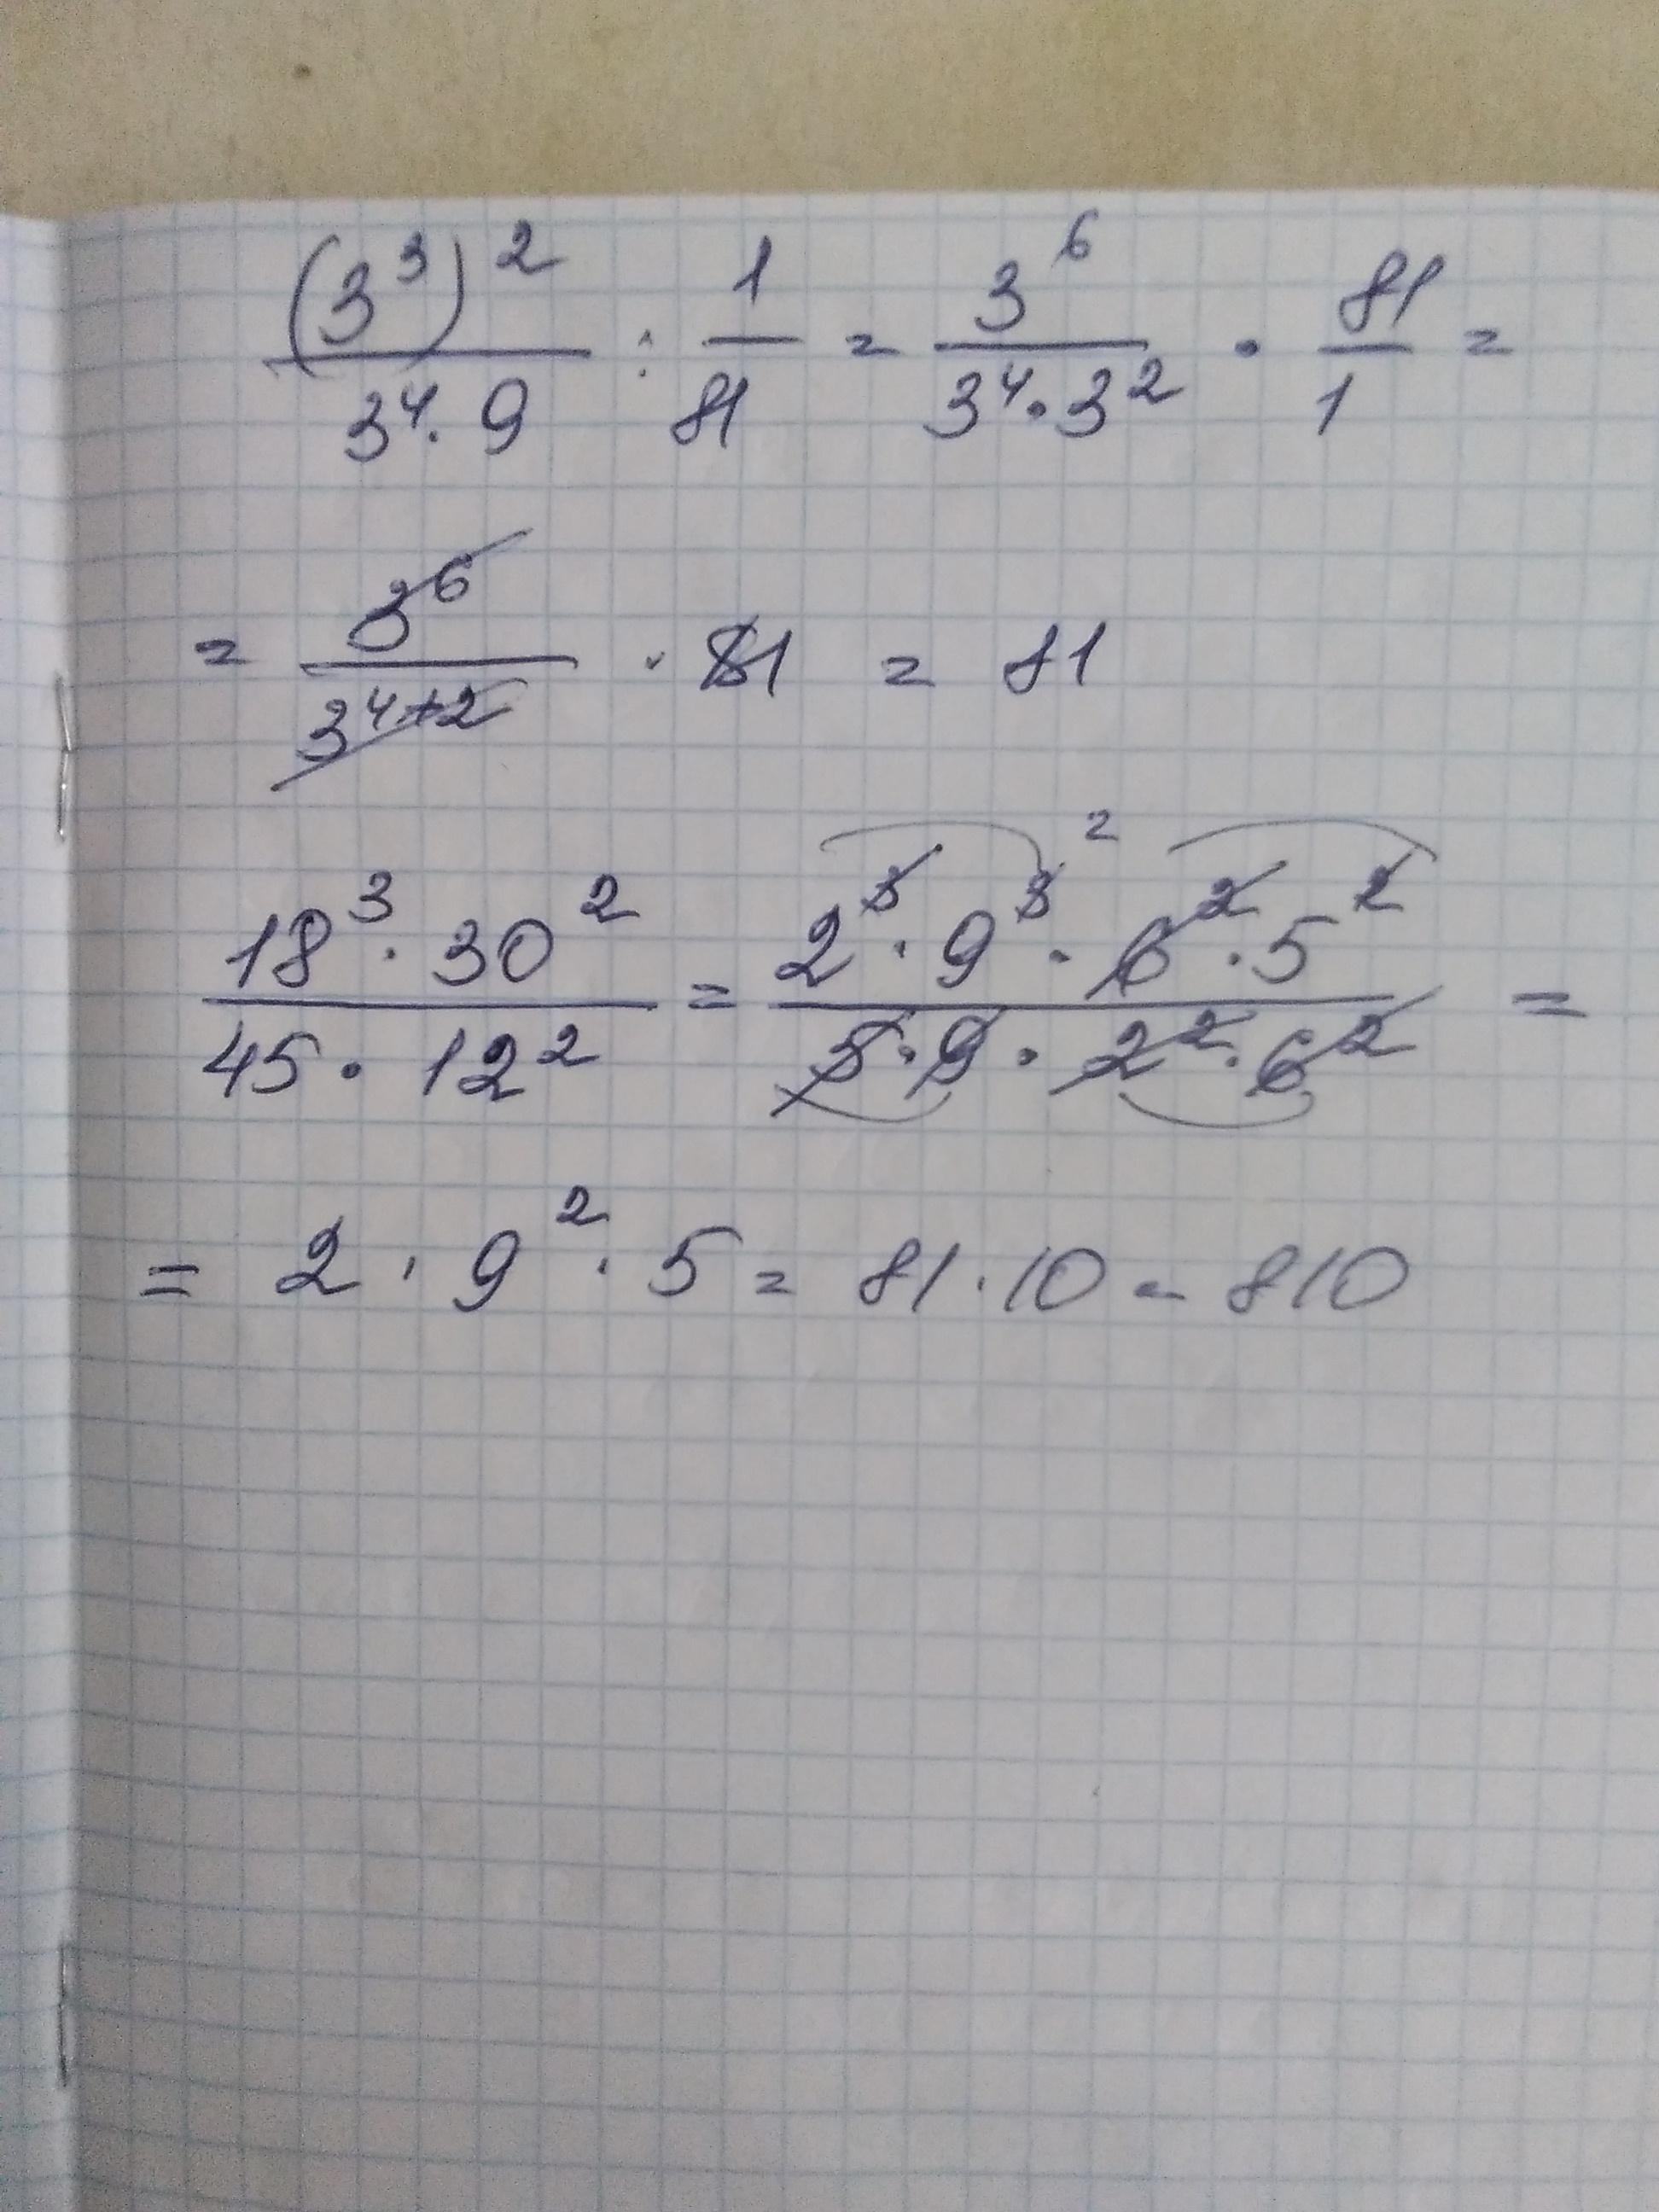 (3³)² / 3⁴·9 : 1/81 = 3⁶ / 3⁴·3² · 81/1 =
= 3⁶ / 3⁴⁺² · 81 = 81
18³·30² / 45·12² = 2³·9³ ²·6²·5² / 5·9·2²·6² =
= 2·9²·5 = 81·10 = 810